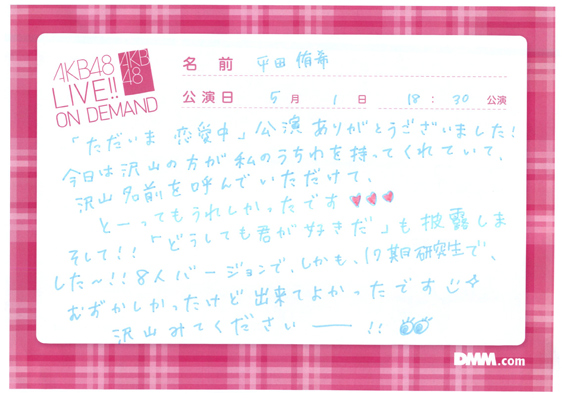 AKB48
LIVE!!
ON DEMAND
AKB
48
名 前 平田侑希
公演日 5月 1日 18:30 公演
「ただいま 恋愛中」公演ありがとうございました!
今日は沢山の方が私のうちわを持ってくれていて、
沢山名前を呼んでいただけて、
とーってもうれしかったです♥♥♥
そして!!「どうしても君が好きだ」も披露しま
した〜!!8人バージョンで、しかも、17期研究生で、
むずかしかったけど出来てよかったです
沢山みてください──!!
DMM.com